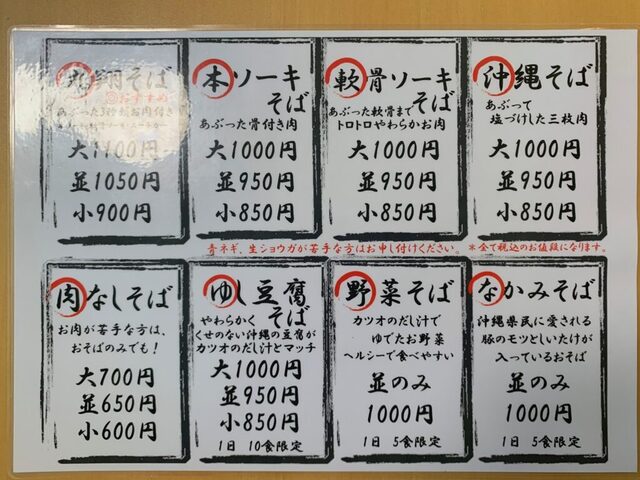 丸翔そば
おすすめ
あぶった3種のお肉付き
大1100円
並1050円
小900円
本ソーキ
そば
あぶった骨付き肉
大1000円
並950円
小850円
軟骨ソーキ
そば
あぶった軟骨まで
トロトロやわらかお肉
大1000円
並950円
小850円
沖縄そば
あぶって
塩づけした三枚肉
大1000円
並950円
小850円
青ネギ、生ショウガが苦手な方はお申し付けください。
*全て税込のお値段になります。
肉なしそば
お肉が苦手な方は、
おそばのみでも!
大700円
並650円
小600円
ゆし豆腐
そば
やわらかく
くせのない沖縄の豆腐が
カツオのだし汁とマッチ
大1000円
並950円
小850円
1日 10食限定
野菜そば
カツオのだし汁で
ゆでたお野菜
ヘルシーで食べやすい
並のみ
1000円
1日 5食限定
なかみそば
沖縄県民に愛される
豚のモツとしいたけが
入っているおそば
並のみ
1000円
1日 5食限定